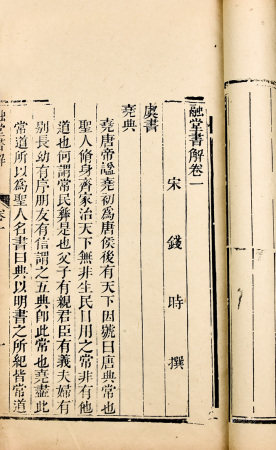 融堂書解卷一
宋 錢 時 撰
虞書
堯典
堯唐帝諡堯初為唐侯後有天下因號曰唐典常也
聖人脩身齊家治天下無非生民日用之常非有他
道也何謂常民彝是也父子有親君臣有義夫婦有
別長幼有序朋友有信謂之五典卽此常也堯盡此
常道所以為聖人名書曰典以明書之所紀皆常道
融堂書解
卷一
一